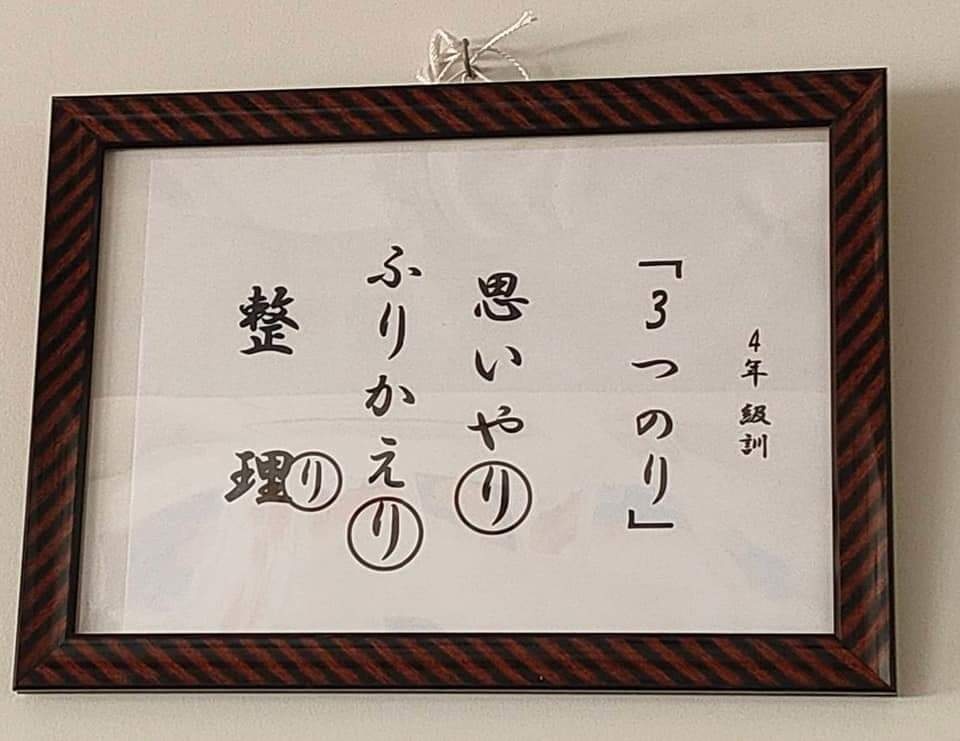 4年 級訓
「3つのり」
思いやり
ふりかえり
整 理り